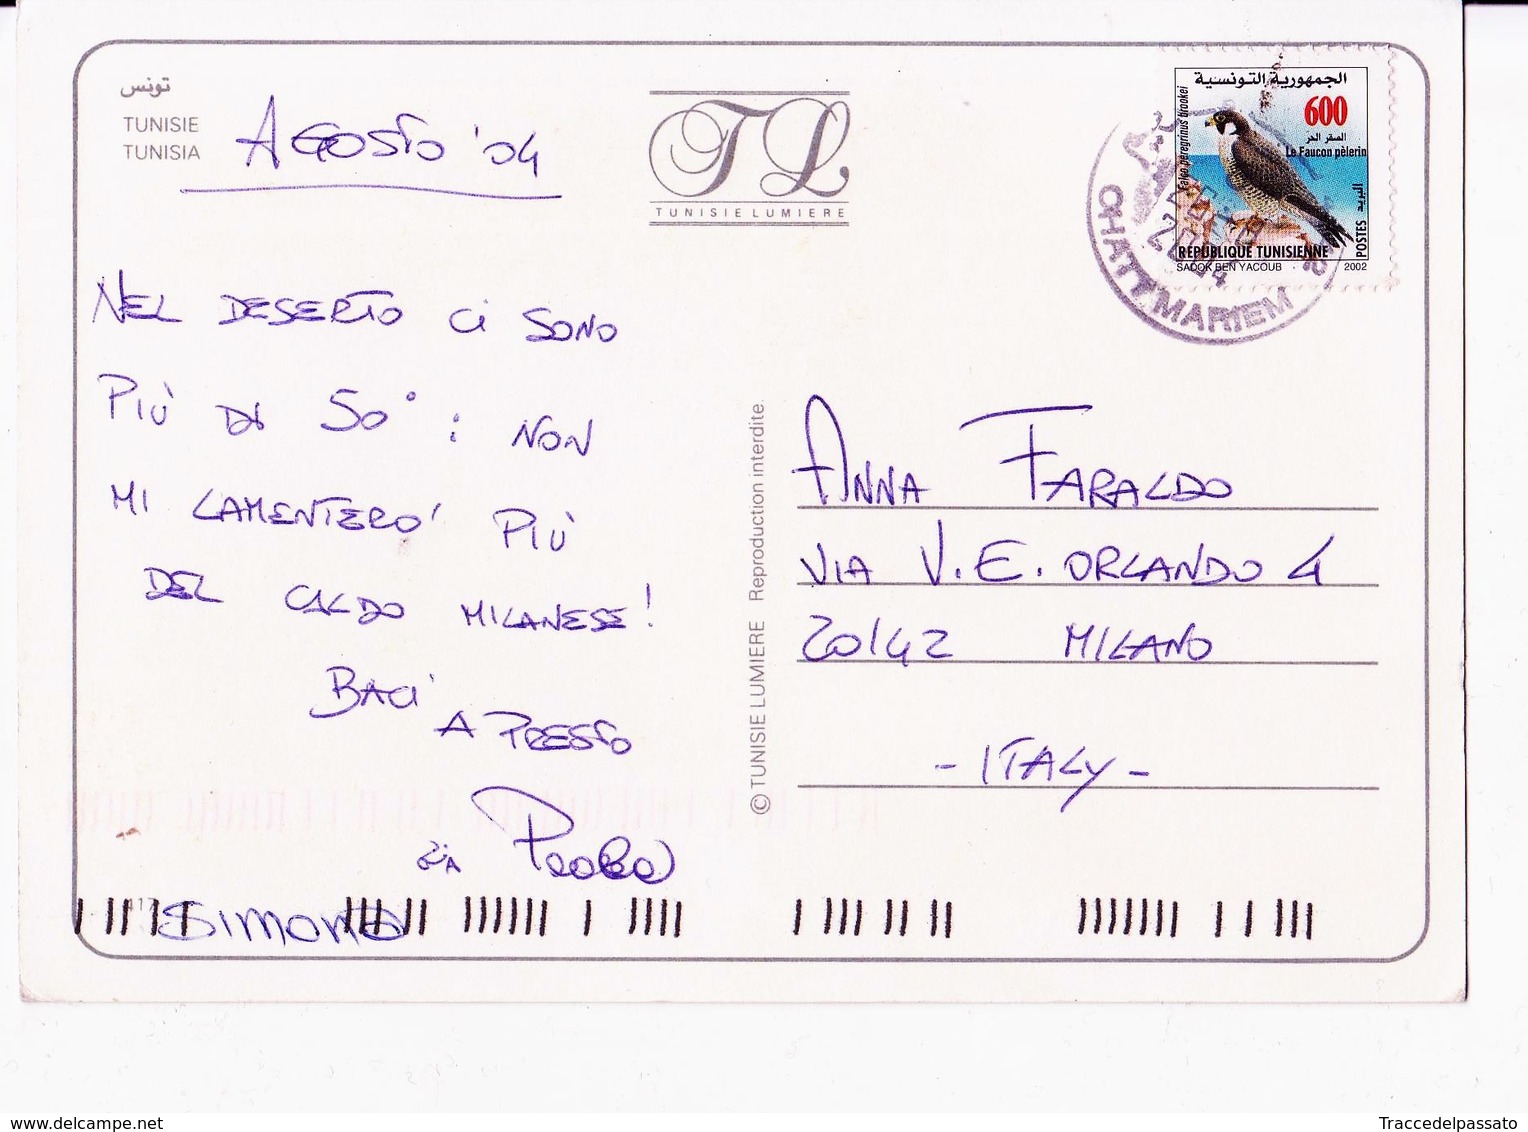 تونس
TUNISIE
TUNISIA
AGOSTO '04
TL
TUNISIE LUMIERE
NEL DESERTO CI SONO
PIÙ DI 50° : NON
MI LAMENTERO' PIÙ
DEL CALDO MILANESE!
BACI
A PRESTO
ZIA
SIMONA
© TUNISIE LUMIERE Reproduction interdite.
الجمهورية التونسية
600
الصقر الحر
Le Faucon pèlerin
Falco peregrinus brookei
البريد
POSTES
REPUBLIQUE TUNISIENNE
SADOK BEN YACOUB 2002
CHATT MARIEM
2004
ANNA FARALDO
VIA V. E. ORLANDO 4
20142 MILANO
- ITALY -
www.delcampe.net
Traccedelpassato